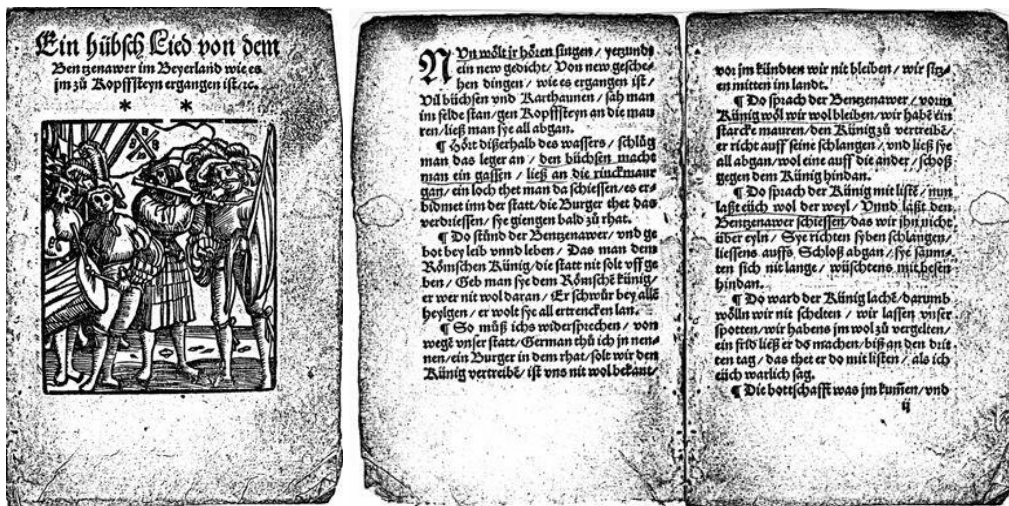 Ein hübsch Lied von dem
Bentzenawer im Beyerland wie es
jm zů Kopffsteyn ergangen ist/ꝛc.
* *
NUn wölt jr hören singen / yetzunds
ein new gedicht / Von new gesche-
hen dingen / wie es ergangen ist /
Vil büchsen vnd Karthaunen / sah man
im felde stan / gen Kopffsteyn an die mau
ren / ließ man sye all abgan.
¶ Hört dißerhalb des wassers / schlůg
man das leger an / den büchsen macht
man ein gassen / ließ an die rinckmaur
gan / ein loch thet man da schiessen / es er-
bidmet inn der statt / die Burger thet das
verdriessen / sye giengen bald zů rhat.
¶ Do stůnd der Bentzenawer / vnd ge
bot bey leib vnnd leben / Das man dem
Römschen Künig / die statt nit solt vff ge
ben / Geb man sye dem Römschē künig /
er wer nit wol daran / Er schwůr bey allē
heylgen / er wolt sye all ertrencken lan.
¶ So můß ichs widersprechen / von
wegē vnser statt / German thů ich jn nen-
nen / ein Burger in dem rhat / solt wir den
Künig vertreibē / ist vns nit wol bekant /
vor jm kündten wir nit bleiben / wir sitz-
en mitten im landt.
¶ Do sprach der Bentzenawer / vorm
Künig wöl wir wol bleiben / wir habē ein
starcke mauren / den Künig zů vertreibē /
er richt auff seine schlangen / vnd ließ sye
all abgan / wol eine auff die ander / schoß
gegen dem Künig hindan.
¶ Do sprach der Künig mit listē / nun
laßt eüch wol der weyl / Vnnd laßt den
Bentzenawer schiessen / das wir jhn nicht
über eyln / Sye richten syben schlangen /
liessens auffs Schloß abgan / sye saum-
ten sich nit lange / wüschtens mit besen
hindan.
¶ Do ward der Künig lachē / darumb
wölln wir nit schelten / wir lassen vnser
spotten / wir habens jm wol zů vergelten /
ein frid ließ er do machen / biß an den drit
ten tag / das thet er do mit listen / als ich
eüch warlich sag.
¶ Die bottschafft was jm kum̄en / vnd
ij